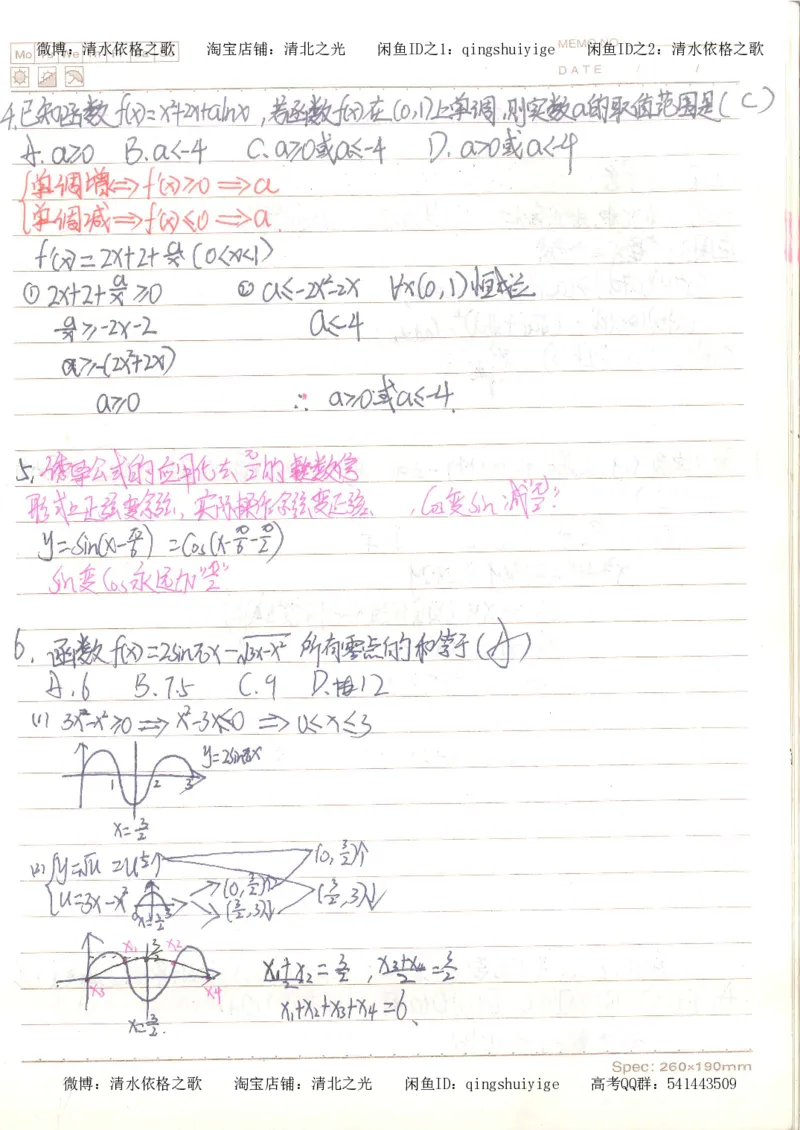 微博：清水依格之歌 淘宝店铺：清北之光 闲鱼ID之1：qingshuiyige 闲鱼ID之2：清水依格之歌
MEMO NO.
DATE / /
4.已知函数 f(x)=x²+2x+alnx，若函数f(x)在(0,1)上单调，则实数a的取值范围是(C)
A. a≥0 B. a≤-4 C. a≥0或a≤-4 D. a>0或a<-4
单调增⟺f'(x)≥0⟹a
单调减⟺f'(x)≤0⟹a.
f'(x)=2x+2+a/x (0<x<1)
① 2x+2+a/x≥0 ② a≤-2x²-2x ∀x(0,1)恒成立
a/x≥-2x-2 a≤-4
a≥-(2x²+2x)
a≥0 ∴ a≥0或a≤-4.
5.诱导公式的应用化去π/2的整数倍
形式上正弦变余弦，实际操作余弦变正弦 ，cos变sin减π/2！
y=sin(x-π/6)=cos(x-π/6-π/2)
sin变cos永远加"π/2"
6.函数f(x)=2sinπx-√3x-x² 所有零点的和等于(A)
A.6 B.7.5 C.9 D.12
(1) 3x-x²≥0⟹x²-3x≤0⟹0≤x≤3
y=2sinπx
1 2 3
x=3/2
(2) y=√u=u^½↑ (0,3/2)↑
u=3x-x² (0,3/2)↑ (3/2,3)↓
x=3/2 (3/2,3)↓
x₁ 3/2 x₂
x₃ x₄
x=3/2.
(x₁+x₂)/2=3/2；(x₃+x₄)/2=3/2
x₁+x₂+x₃+x₄=6、
Spec: 260×190mm
微博：清水依格之歌 淘宝店铺：清北之光 闲鱼ID：qingshuiyige 高考QQ群：541443509